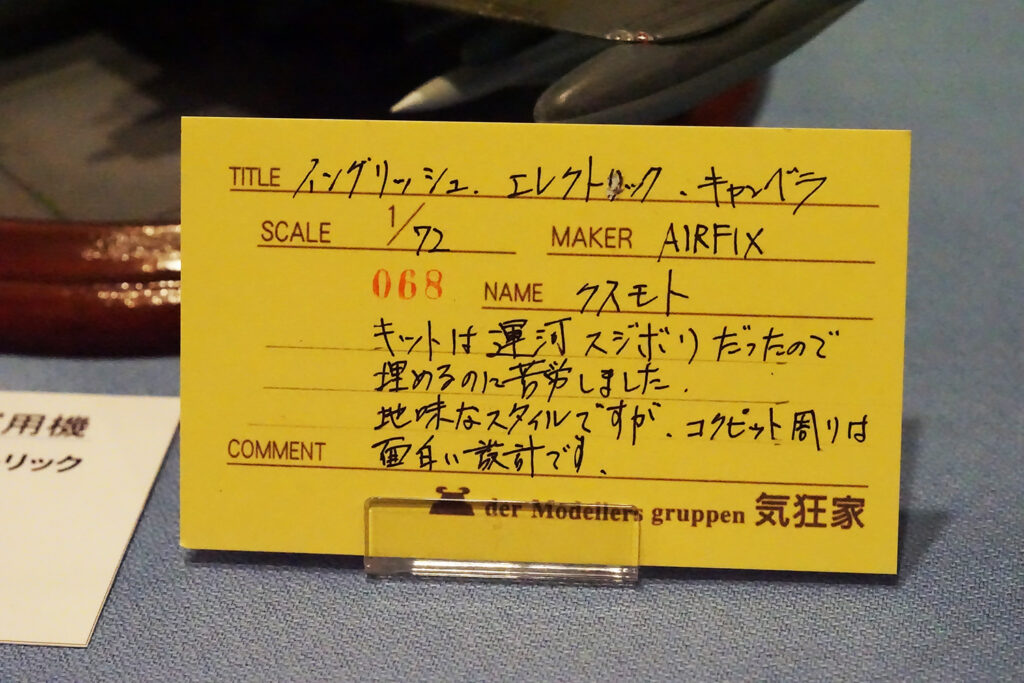 TITLE イングリッシュ. エレクトリック. キャンベラ
SCALE 1/72 MAKER AIRFIX
068 NAME クスモト
キットは運河スジボリだったので
埋めるのに苦労しました.
地味なスタイルですが、コクピット周りは
COMMENT 面白い設計です.
der Modellers gruppen 気狂家
用機
リック